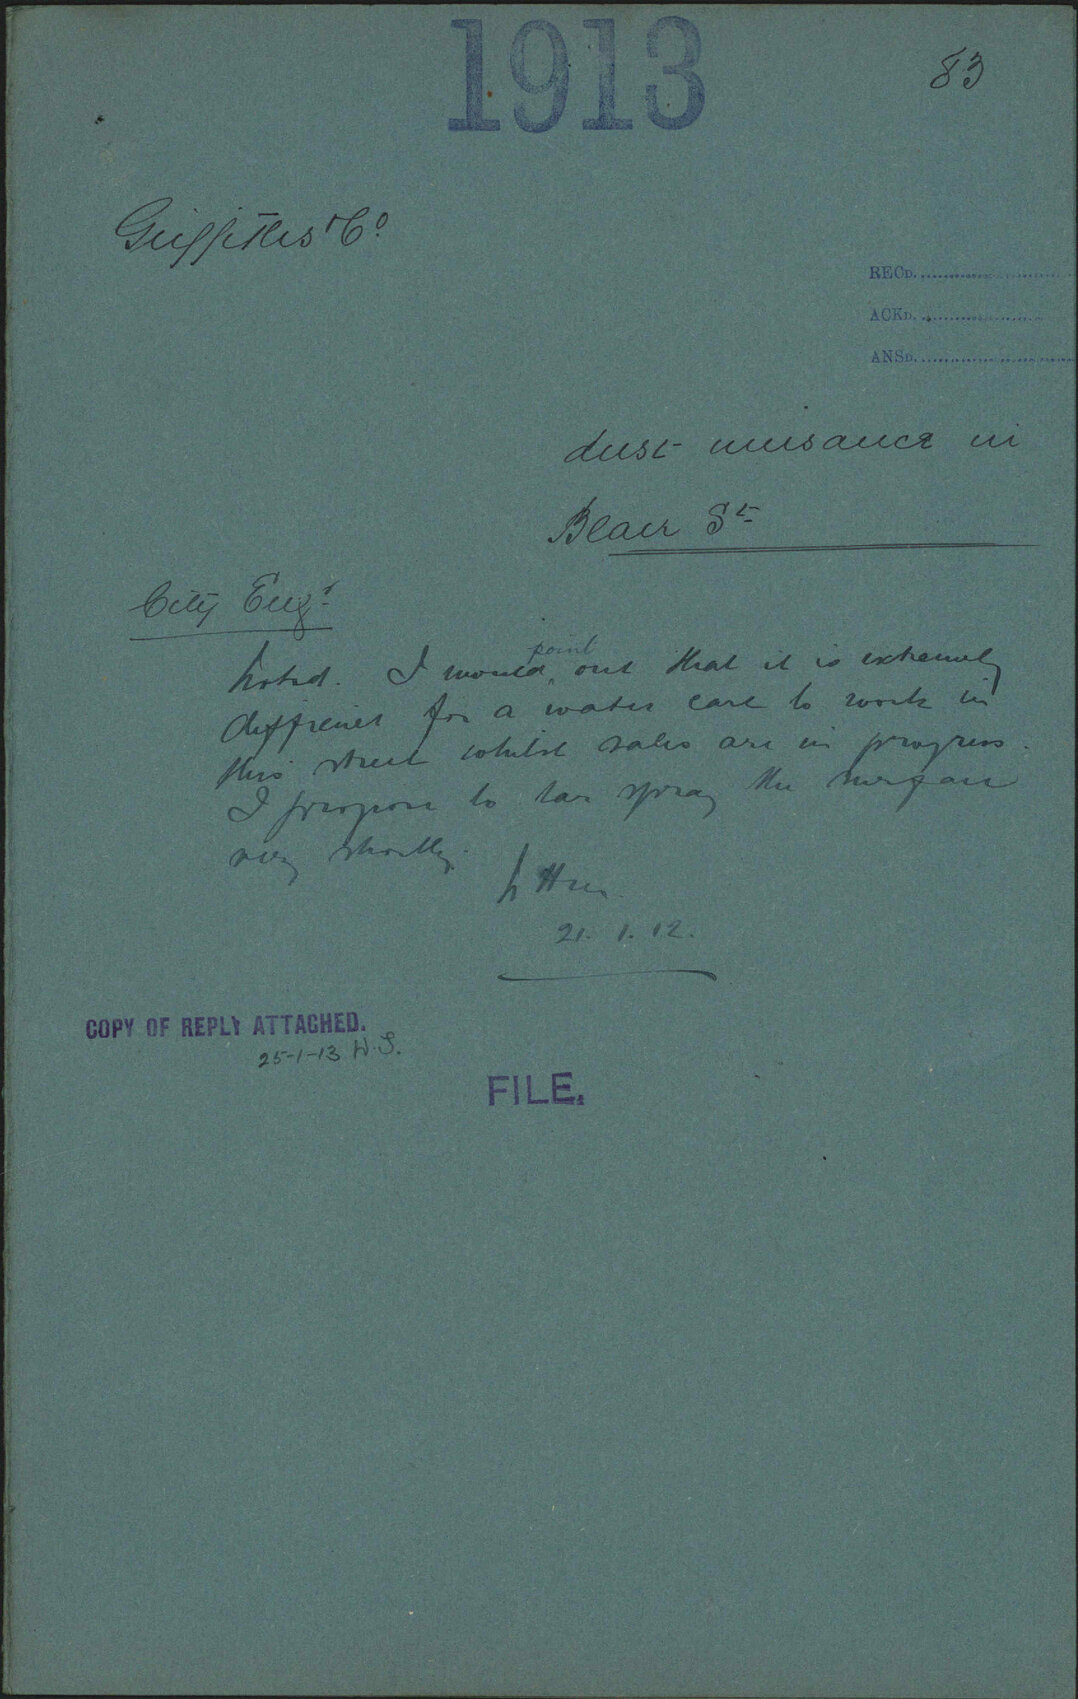 1913
83
Griffiths & Co.
RECD.
ACKD.
ANSD.
dust nuisance in
Blair St
City Engr.
Noted. I would point out that it is extremely
difficult for a water cart to work in
this street whilst sales are in progress.
I propose to tar spray the surface
very shortly.
21.1.12.
COPY OF REPLY ATTACHED.
25-1-13 W.S.
FILE.